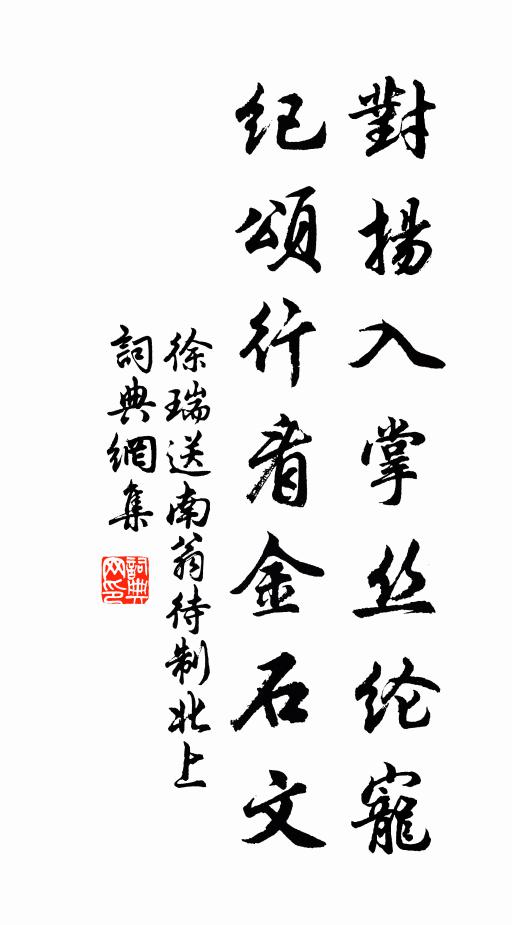 對揚入掌丝纶寵
纪頌行看金石文
徐瑞送南翁待制北上
詞典網集
詞典网印